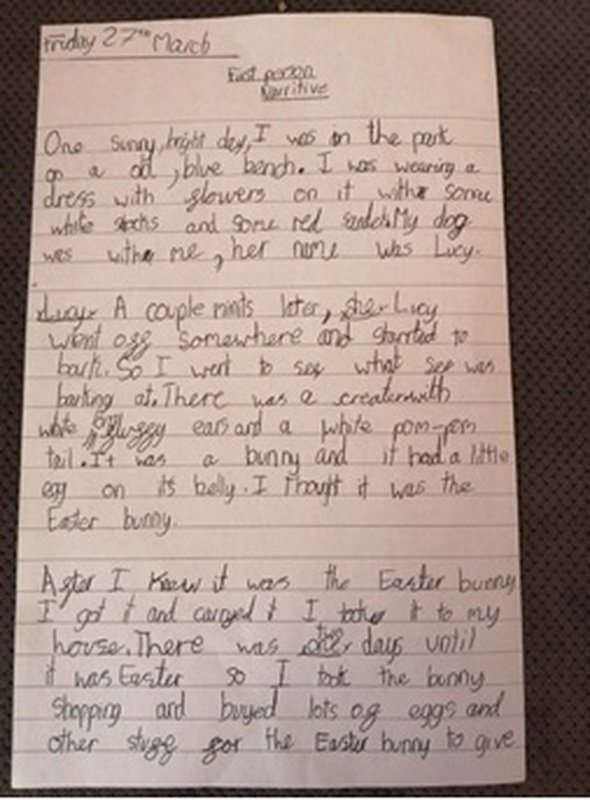 Friday 27th March
First person
Narritive
One sunny, bright day, I was in the park
on a old, blue bench. I was wearing a
dress with flowers on it with some
white socks and some red sandels. My dog
was with me, her name was Lucy.
Lucy A couple mints later, she Lucy
went off somewhere and starrted to
bark. So I went to see what see was
barking at. There was a creater with
white fluffy ears and a white pom-pom
tail. It was a bunny and it had a little
egg on its belly. I thought it was the
Easter bunny.
After I knew it was the Easter bunny
I got it and carryed it I it to my
house. There was days until
it was Easter so I took the bunny
shopping and buyed lots of eggs and
other stuff for the Easter bunny to give